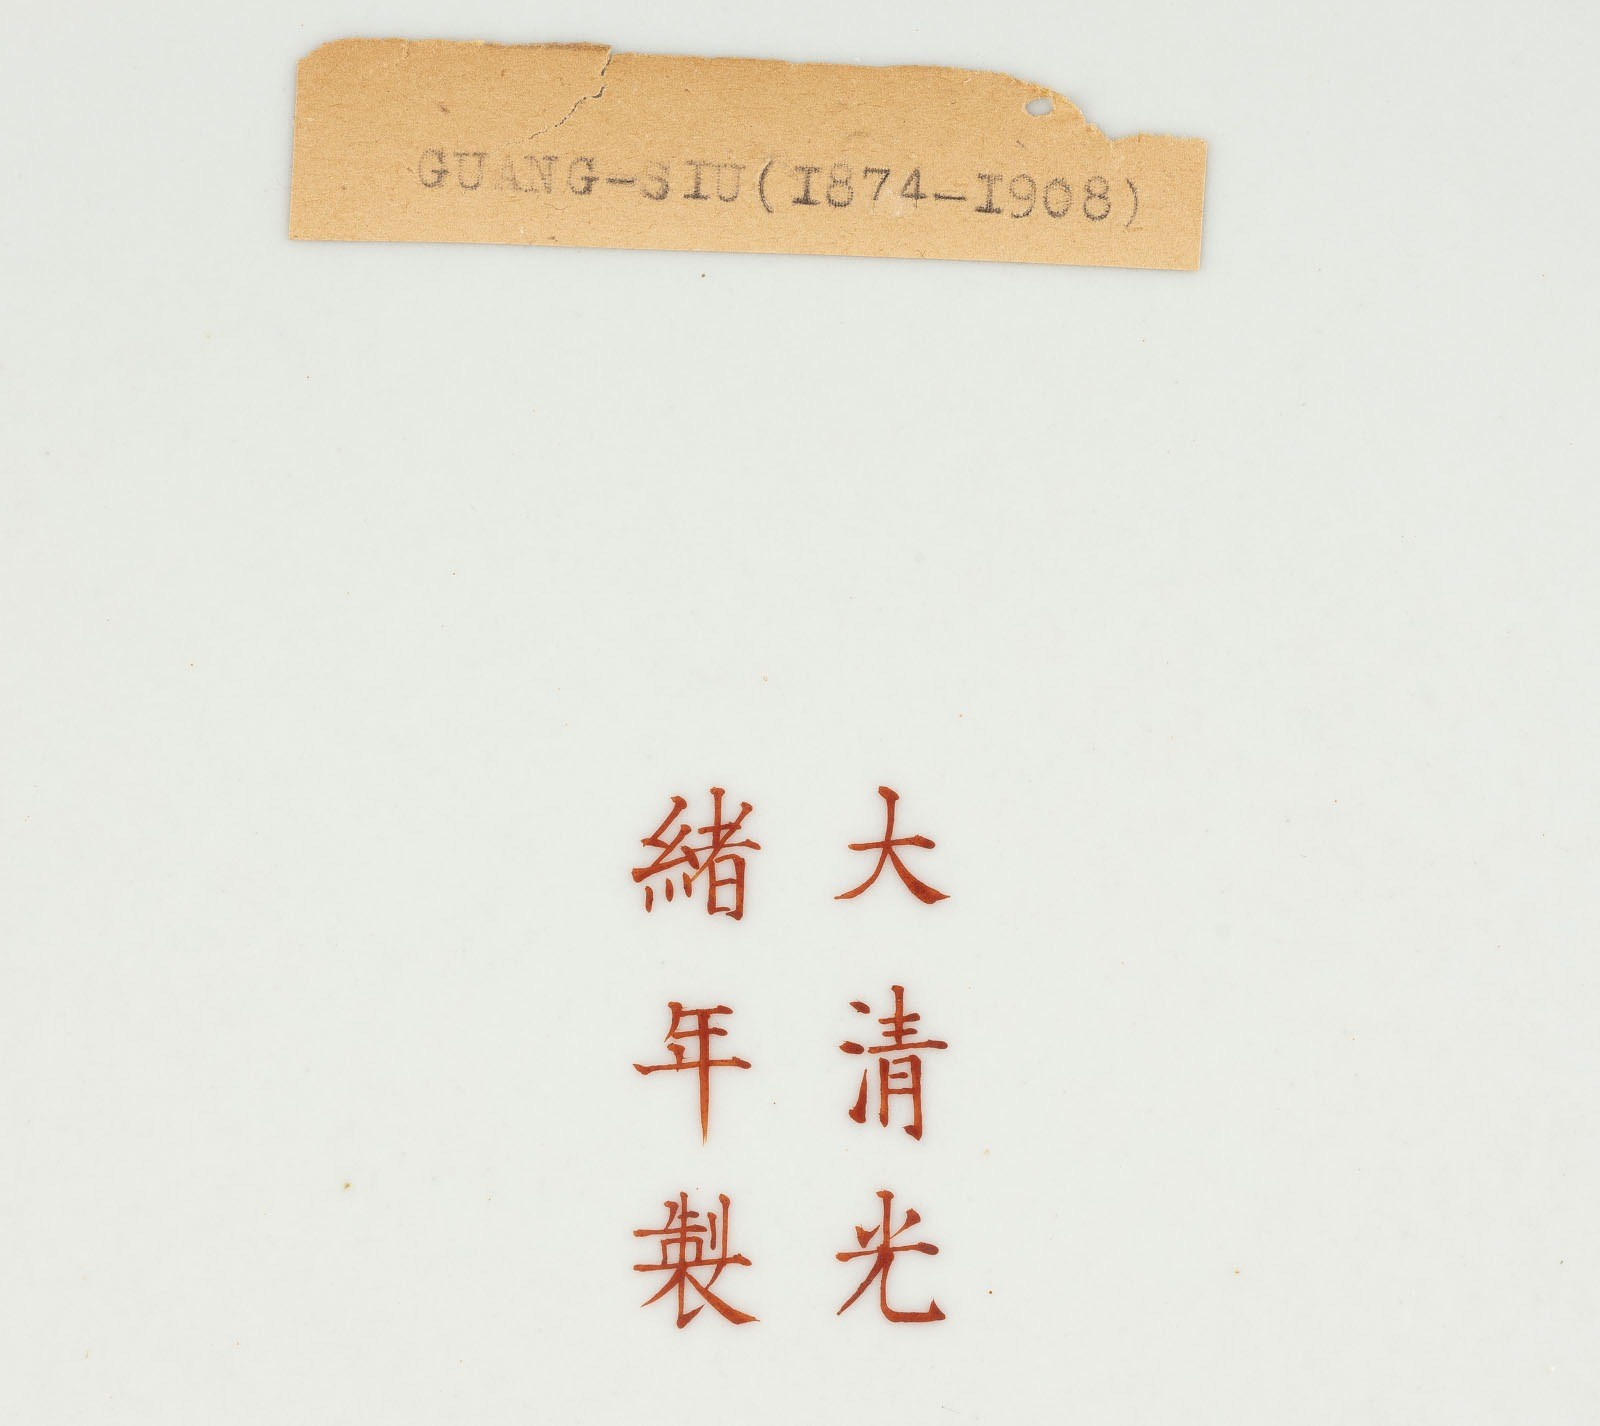 GUANG-SIU(1874-1908)
大清光
緒年製